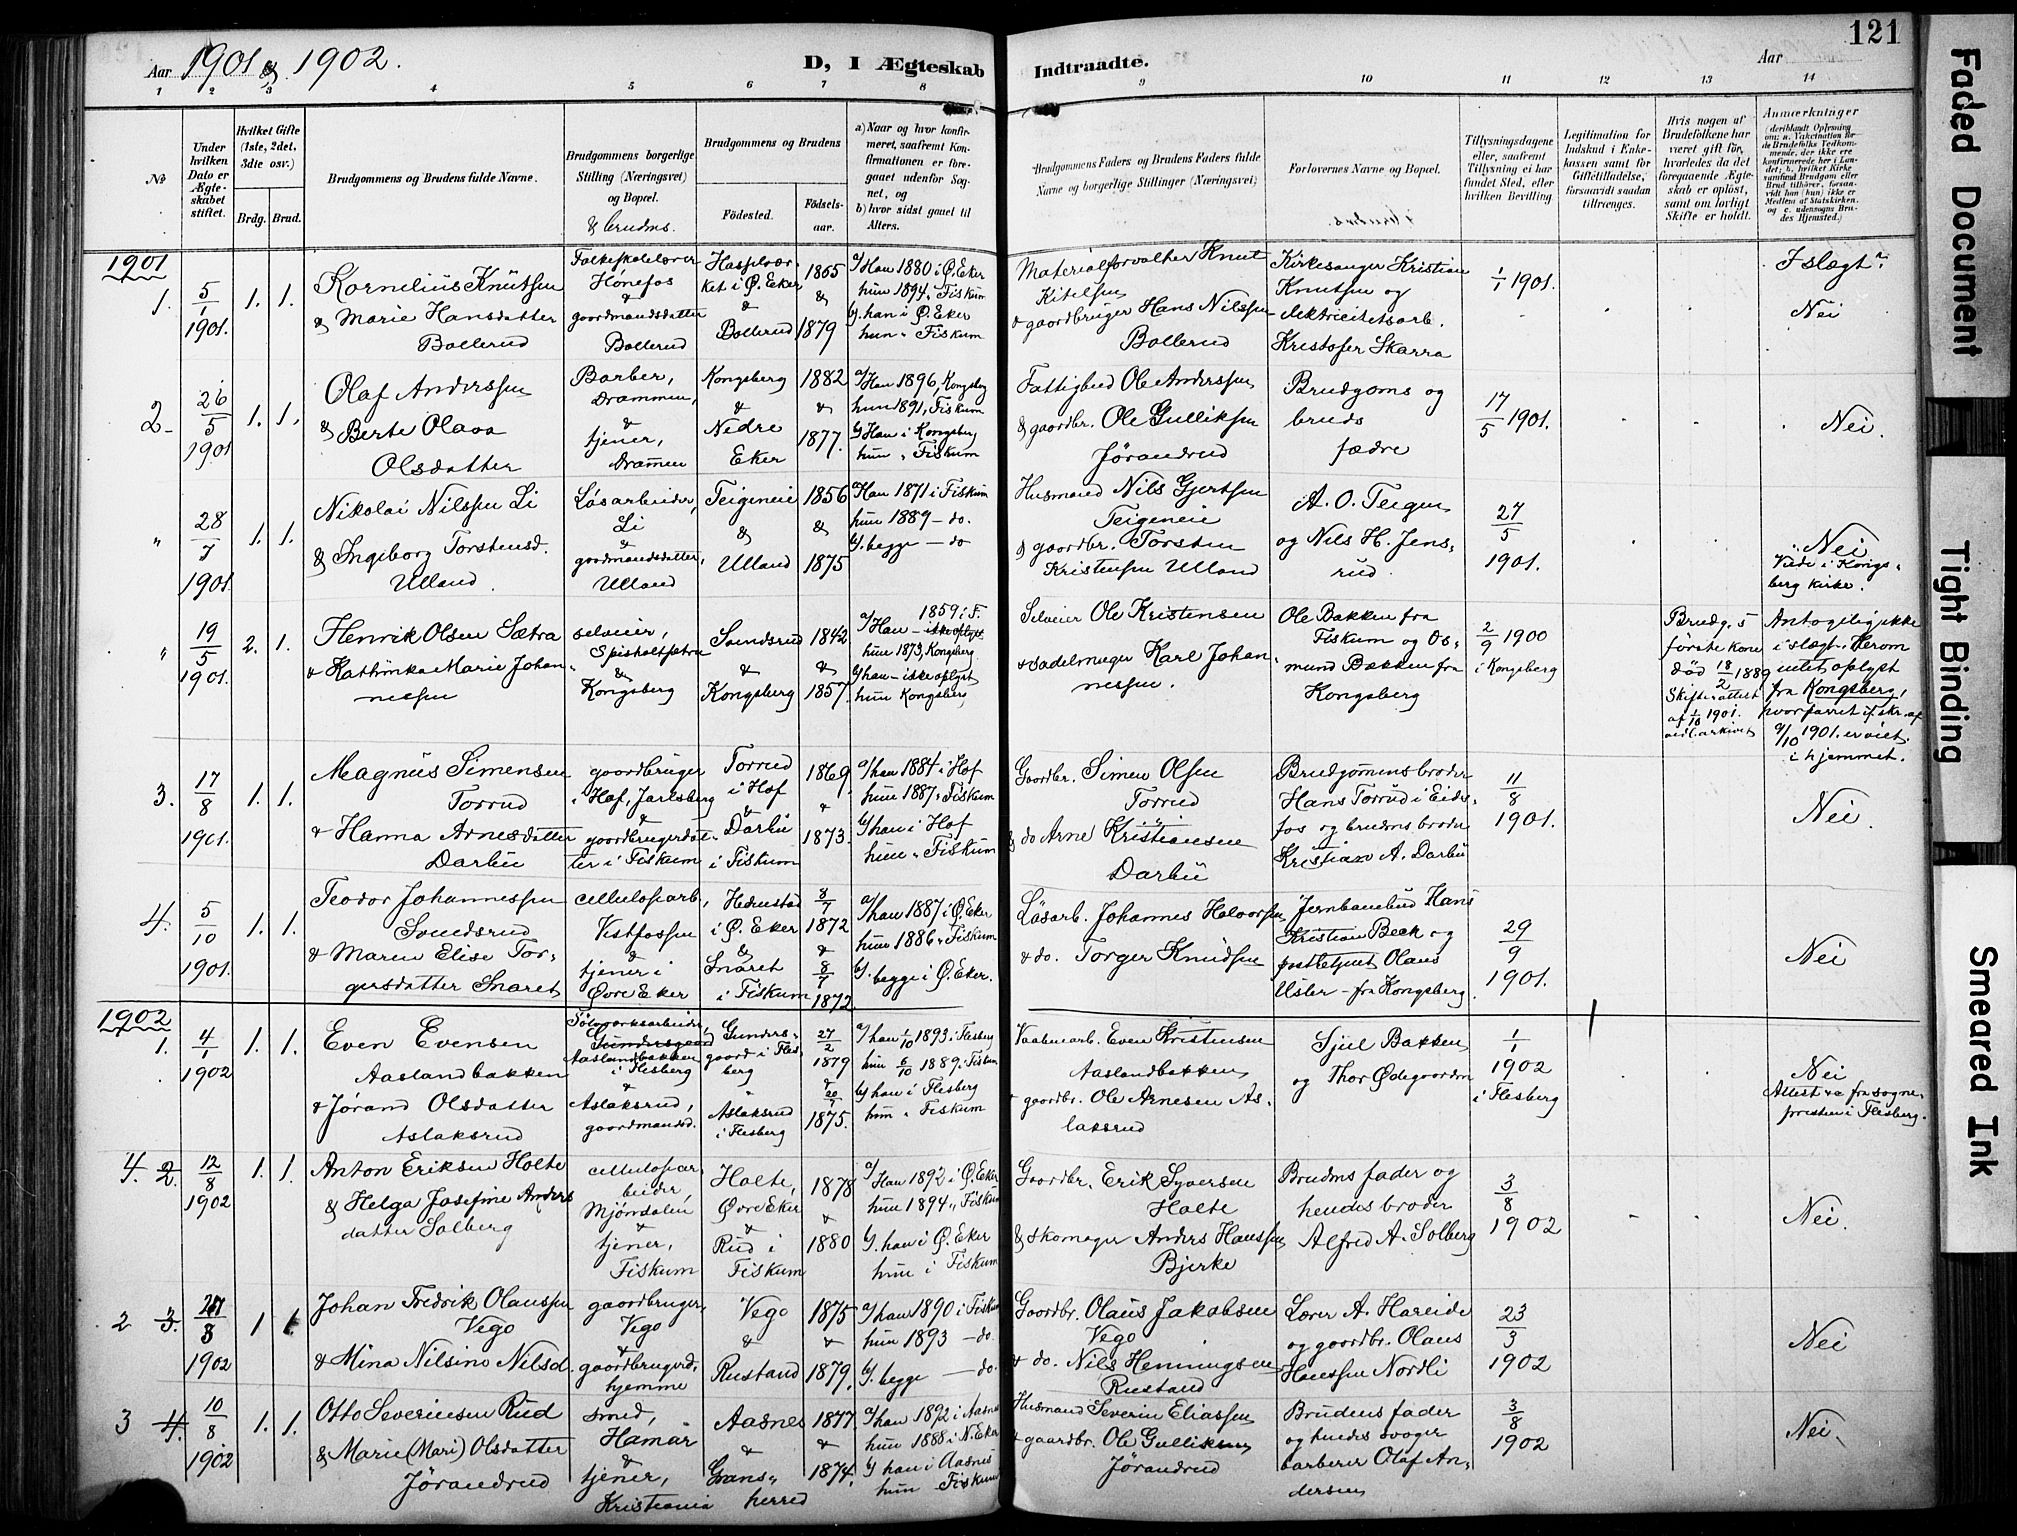 Aar 1901 & 1902.
D, I Ægteskab
Indtraadte.
Aar
121
1 2 3 4 5 6 7 8 9 10 11 12 13 14
No
Under hvilken Dato er Ægteskabet stiftet.
Hvilket Gifte (1ste, 2det, 3dte osv.)
Brdg. Brud.
Brudgommens og Brudens fulde Navne.
Brudgommens borgerlige Stilling (Næringsvei) og Bopæl.
& brudens.
Brudgommens og Brudens
Födested.
Födselsaar.
a) Naar og hvor konfirmeret, saafremt Konfirmationen er foregaaet udenfor Sognet, og
b) hvor sidst gaaet til Alters.
Brudgommens Faders og Brudens Faders fulde Navne og borgerlige Stillinger (Næringsvei)
Forlovernes Navne og Bopæl.
Tillysningsdagene eller, saafremt Tillysning ei har fundet Sted, efter hvilken Bevilling.
Legitimation for Indskud i Enkekassen samt for Giftetilladelse, forsaavidt saadan tiltrænges.
Hvis nogen af Brudefolkene har været gift før, hvorledes da det foregaaende Ægteskab er oplöst, samt om lovligt Skifte er holdt.
Anmærkninger
1901
1. 5/1 1901. 1. 1.
Kornelius Knutsen
& Marie Hansdatter
Bollerud
Folkeskolelærer
Hönefos
&
gaardmandsdatter
Bollerud
Hasselvær
ket i Ø. Eker
&
Bollerud
1865
&
1879
a/ Han 1880 i Ø. Eker
hun 1894 " Fiskum
b/ han i Ø. Eker
hun " Fiskum
Materialforvalter Knut
Kitelsen
& gaardbruger Hans Nilssen
Bollerud
Kirkesanger Kristian
Knutsen og
elektricitetsarb.
Kristofer Skarra
1/1 1901.
I slægt?
Nei
2 26/5 1901 1. 1.
Olaf Anderssen
& Berte Olava
Olsdatter
Barber,
Drammen,
&
tjener,
Drammen
Kongsberg
&
Nedre
Eker
1882
&
1877.
a/ Han 1896, Kongsberg
hun 1891, Fiskum
b/ Han i Kongsberg
hun " Fiskum
Fattigbud Ole Anderssen
& gaardbr. Ole Gulliksen
Jörandrud
Brudgoms og
bruds
fædre
17/5 1901.
Nei.
" 28/7 1901. 1. 1.
Nikolai Nilssen Li
& Ingeborg Torstensd.
Ulland.
Løsarbeider,
Li
&
gaardmandsdatter,
Ulland
Teigeneie
&
Ulland
1856
&
1875
a/ Han 1871 i Fiskum
hun 1889 – do.
b/. begge – do
Husmand Nils Gjertsen
Teigeneie
& gaardbr. Torsten
Kristensen Ulland
A. O. Teigen
og Nils H. Jens-
rud.
27/5
1901.
Nei
Viede i Kongs-
berg kirke.
" 19/5 1901. 2. 1.
Henrik Olsen Sætra
& Kathinka Marie Johan
nessen
selveier,
Spisholtsætra
&
Kongsberg
Somdsrud
&
Kongsberg
1842
&
1857.
1859 i F.
a/ Han – ikke oplyst.
hun 1873, Kongsberg
b/ han – ikke oplyst
hun Kongsberg
Selveier Ole Kristensen
& sadelmager Karl Johan
nessen.
Ole Bakken fra
Fiskum og Os-
mund Bakken fra
Kongsberg
2/9 1900
i Kongsberg
Brudg.s
første kone
död 18/2 1889
Skifteattest
af 1/10 1901.
ved arkivet
Antagelig ikke
i slægt. Herom
intet oplyst
fra Kongsberg,
hvor parret if. skr. af
9/10 1901. er viet
i hjemmet.
3. 17/8 1901. 1. 1.
Magnus Simensen
Torrud
& Hanna Arnesdatter
Darbu
gaardbruger
i Hof, Jarlsberg
&
gaardbrugerdat-
ter i Fiskum
Torrud
i Hof
&
Darbu
i Fiskum
1869.
&
1873.
a/ han 1884 i Hof
hun 1887 " Fiskum
b/ han i Hof
hun " Fiskum
Gaardbr. Simen Olsen
Torrud
& do Arne Kristiansen
Darbu
Brudgommens broder
Hans Torrud i Eids-
fos og brudens broder
Kristian A. Darbu
11/8
1901.
Nei.
4. 5/10 1901. 1. 1.
Teodor Johannessen
Somdsrud
& Maren Elise Tor-
gersdatter Snaret
cellulosearb,
Vestfossen
&
tjener i
Øvre Eker
Hedenstad
i Ø. Eker
&
Snaret
i Fiskum
8/7
1872
&
8/7
1872
a/ han 1887 i Ø. Eker
hun 1886 " Fiskum
b/. begge i Ø. Eker.
Løsarb. Johannes Halvorsen
& do. Torger Knudsen
Jernbanebud Hans
Kristian Beck og
postbetjent Olaus
Usler – fra Kongsberg
29/9
1901.
Nei
1902
1. 4/1 1902 1. 1.
Even Evensen
Aaslandbakken
& Jørand Olsdatter
Aslaksrud
Sölvverksarbeider,
Gundersgaard
Aaslandbakken
i Flesberg
&
Aslaksrud,
gaardmandsd.
Gunders-
gaard i Fles-
berg
Aslaksrud
i Flesberg
27/2
1879
&
20/7
1875.
a/ han 1/10 1893 i Flesberg
hun 6/10 1889 i Fiskum
b/ han i Flesberg
hun " Fiskum
Vaabenarb. Even Kristensen
Aaslandbakken
& gaardbr. Ole Arnesen As-
laksrud
Sjul Bakken
og Thor Ødegaarden
1/1
1902
i Flesberg
Nei
Attest &c fra sogne-
presten i Flesberg.
4. 2. 12/8 1902 1. 1.
Anton Eriksen Holte
& Helga Josefine Anders
datter Solberg
cellulosear
beider,
Mjöndalen
&
tjener,
Fiskum
Holte,
Øvre Eker
&
Rud i
Fiskum
1878
&
1880
a/ Han 1892 i Ø. Eker
hun 1894 " Fiskum
b/. han i Ø. Eker
hun i Fiskum
Gaardbr. Erik Syversen
Holte
& skomager Anders Hanssen
Bjerke
Brudens fader og
hendes broder
Alfred A. Solberg
3/8
1902
Nei.
2 3. 27/3 1902 1 1.
Johan Fredrik Olaussen
Vego
& Mina Nilsine Nilsd.
gaardbruger,
Vego
&
gaardbrugerd,
hjemme
Vego
&
Rustand
1875
&
1879.
a/ han 1890 i Fiskum
hun 1893 – do.
b/. begge – do.
Gaardbr. Olaus Jakobsen
Vego
& do. Nils Henningsen
Rustand
Lærer A. Hareide
og gaardbr. Olaus
Hanssen Nordli
23/3
1902
Nei
3 4. 10/8 1902 1. 1.
Otto Severinsen Rud
& Marie (Mari) Olsdatter
Jörandrud
smed,
Hamar
&
tjener,
Kristiania
Aasnes
&
Grans-
herred
1877.
&
1874.
a/ han 1892 i Aasnes
hun 1888 i N. Eker
b/ han i Aasnes
hun Fiskum
Husmand Severin Eliassen
& gaardbr. Ole Gulliksen
Jörandrud
Brudens fader
og hendes svoger
barberer Olaf An-
dersen
3/8
1902
Nei.
Faded Document
Tight Binding
Smeared Ink